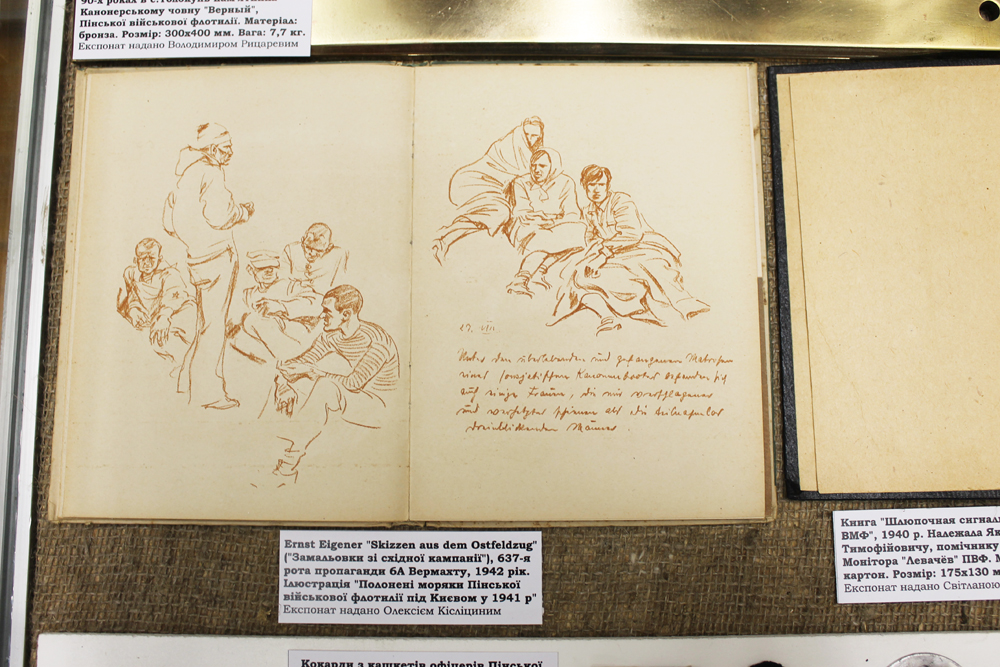 Канонерському човну "Верный",
Пінської військової флотилії. Матеріал:
бронза. Розмір: 300х400 мм. Вага: 7,7 кг.
Експонат надано Володимиром Рицаревим
27. VIII.
Unter den überlebenden und gefangenen Matrosen
eines sowjetischen Kanonenbootes befanden sich
auch einige Frauen, die mir verschlagener
und verhetzter schienen als die teilnahmslos
dreinblickenden Männer.
Ernst Eigener "Skizzen aus dem Ostfeldzug"
("Замальовки зі східної кампанії"), 637-я
рота пропаганди 6А Вермахту, 1942 рік.
Ілюстрація "Полонені моряки Пінської
військової флотилії під Києвом у 1941 р"
Експонат надано Олексієм Кісліциним
Книга "Шлюпочная
ВМФ", 1940 р. Належала
Тимофійовичу, помічнику
Монітора "Левачёв" ПВФ.
картон. Розмір: 175х130
Експонат надано Світланою
Кокарди з кашкетів офіцерів Пінської